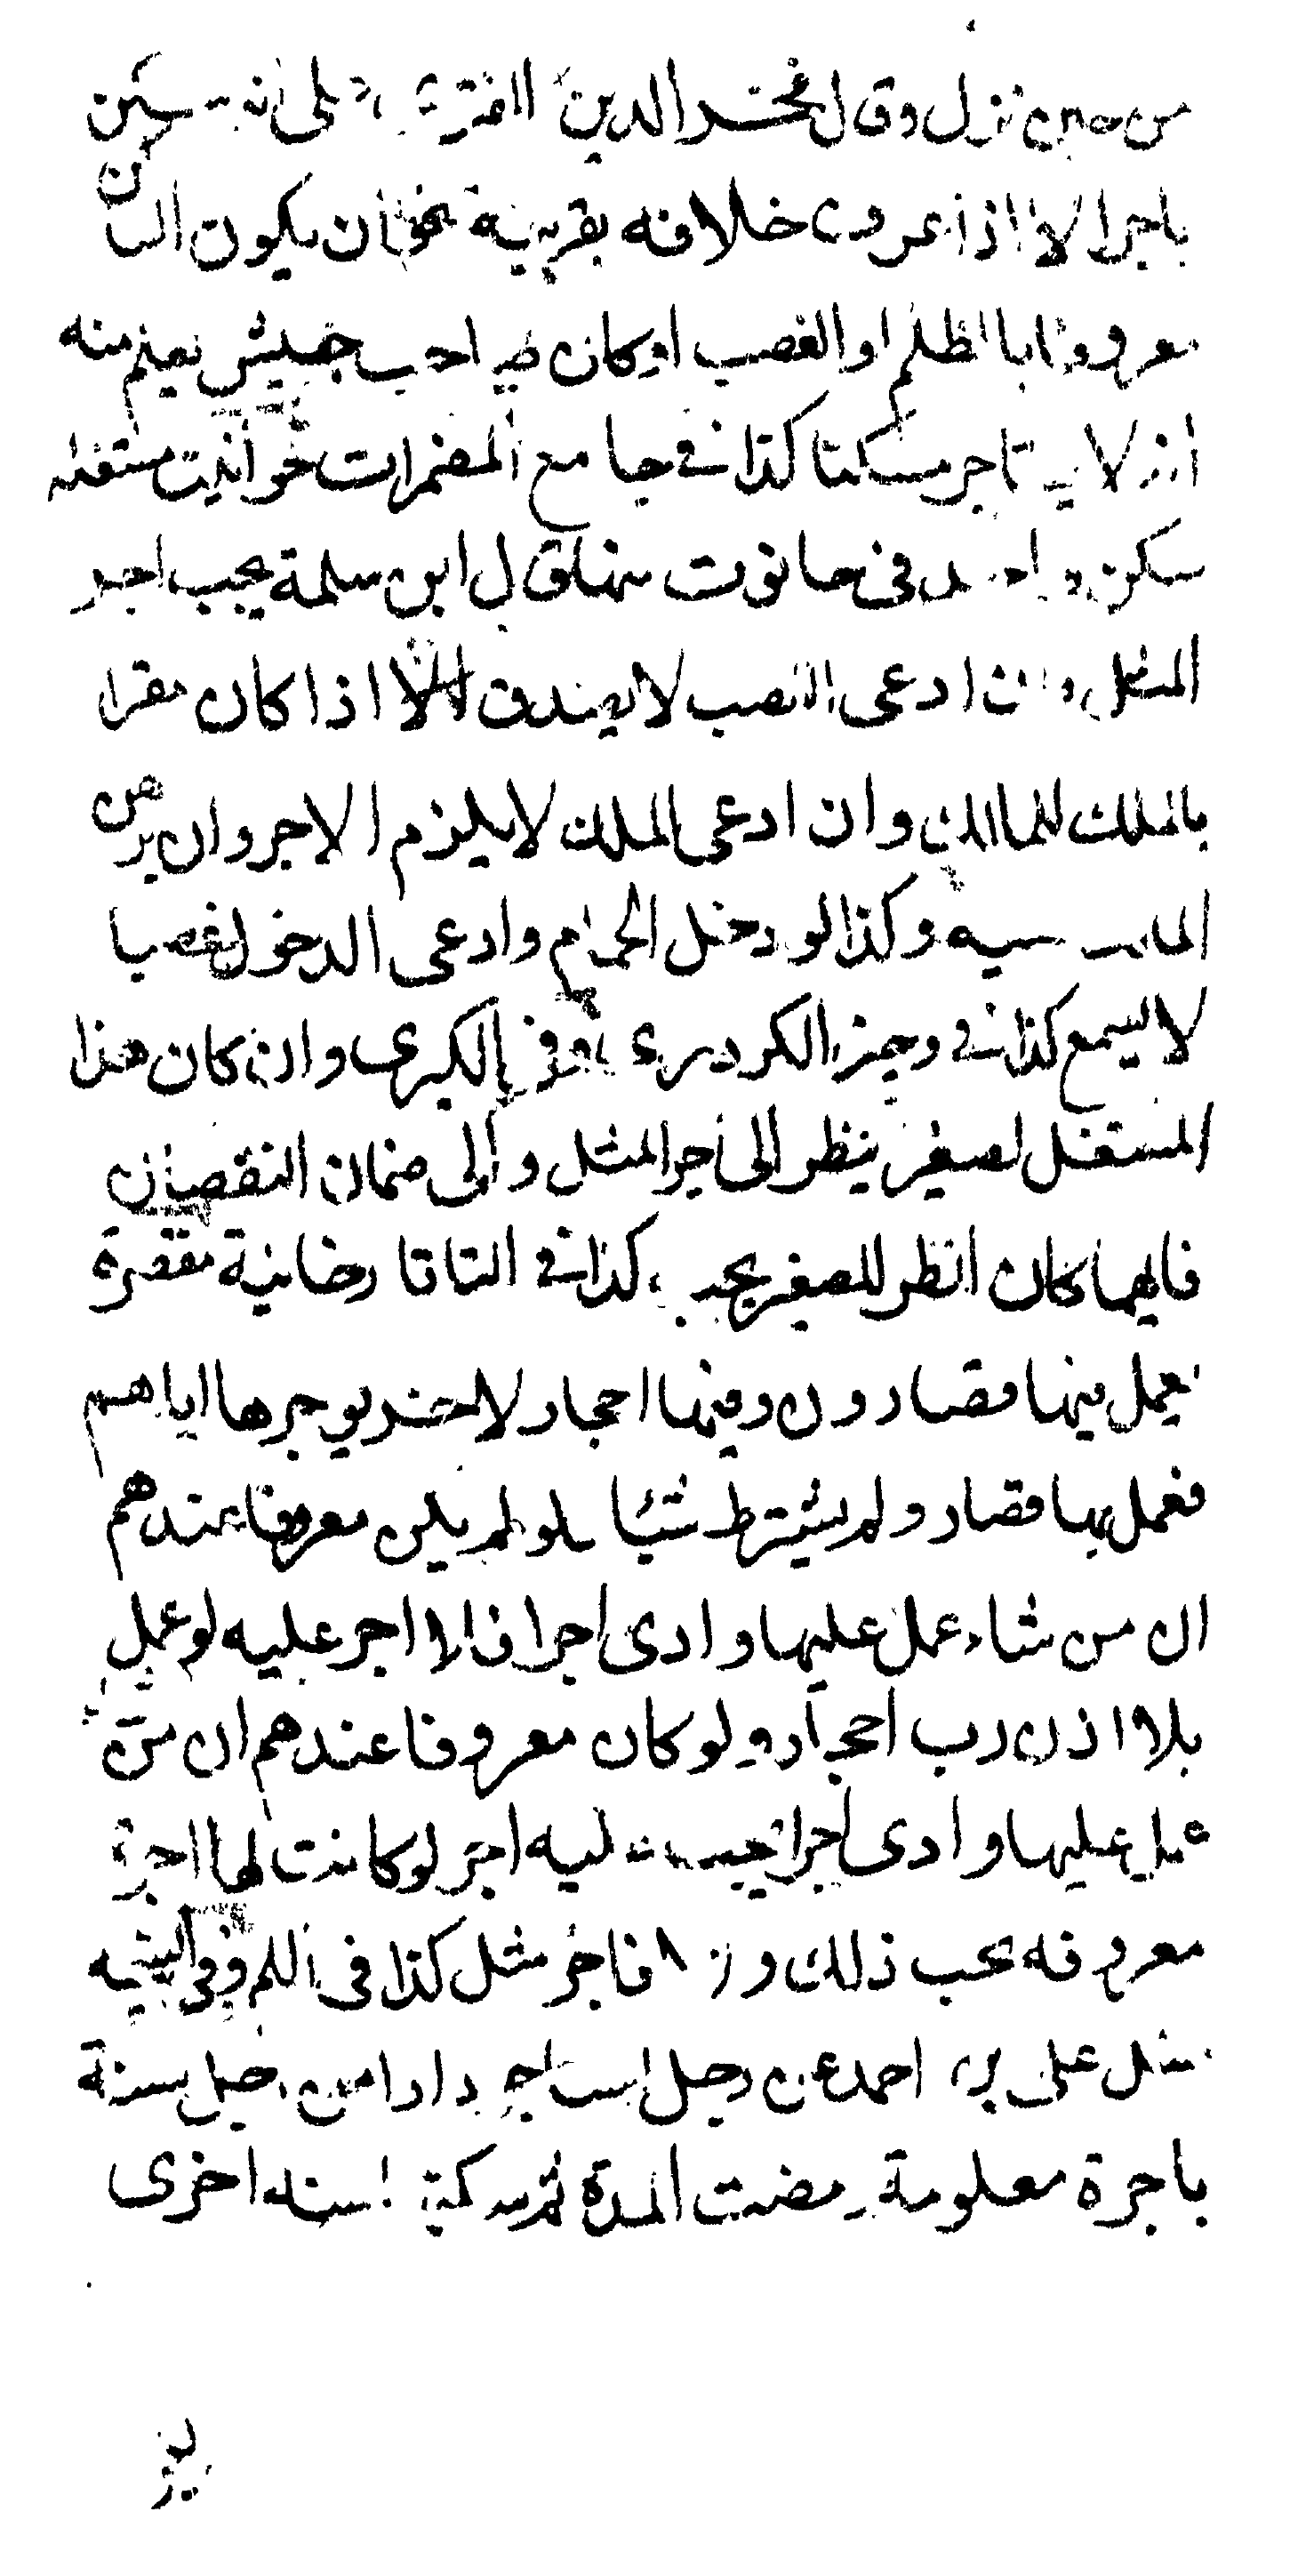 من حين نزل وقال فخر الدين الفتوى على انه يسكن
باجر الا اذا عرف خلافه بقرينة نحو ان يكون الساكن
معروفا بالظلم او الغصب او كان صاحب جيش يعلم منه
انه لا يستاجر مسكنا كذا في جامع المضمرات حوانيت مستغله
سكن واحد في حانوت منها قال ابن سلمة يجب اجر
المثل وان ادعى الغصب لا يصدق الا اذا كان مقرا
بالملك للمالك وان ادعى الملك لا يلزم الاجر وان برهن
المالك عليه وكذا لو دخل الحمام وادعى الدخول غصبا
لا يسمع كذا في وجيز الكردري وفي الكبرى وان كان هذا
المستغل لصغير ينظر الى اجر المثل والى ضمان النقصان
فايهما كان انظر للصغير يجب كذا في التاتارخانية مقصرة
يعمل فيها قصارون وفيها احجار لاخر يوجرها اياهم
فعمل بها قصار ولم يشترط شيئا لو لم يكن معروفا عندهم
ان من شاء عمل عليها وادى اجرا فلا اجر عليه لو عمل
بلا اذن رب احجار ولو كان معروفا عندهم ان من
عمل عليها وادى اجرا يجب عليه اجر لو كانت لها اجرة
معروفه يجب ذلك والا فاجر مثل كذا في وفي اليتيمه
سئل علي بن احمد عن رجل استاجر دارا من رجل سنة
باجرة معلومة ومضت المدة ثم سكن سنه اخرى